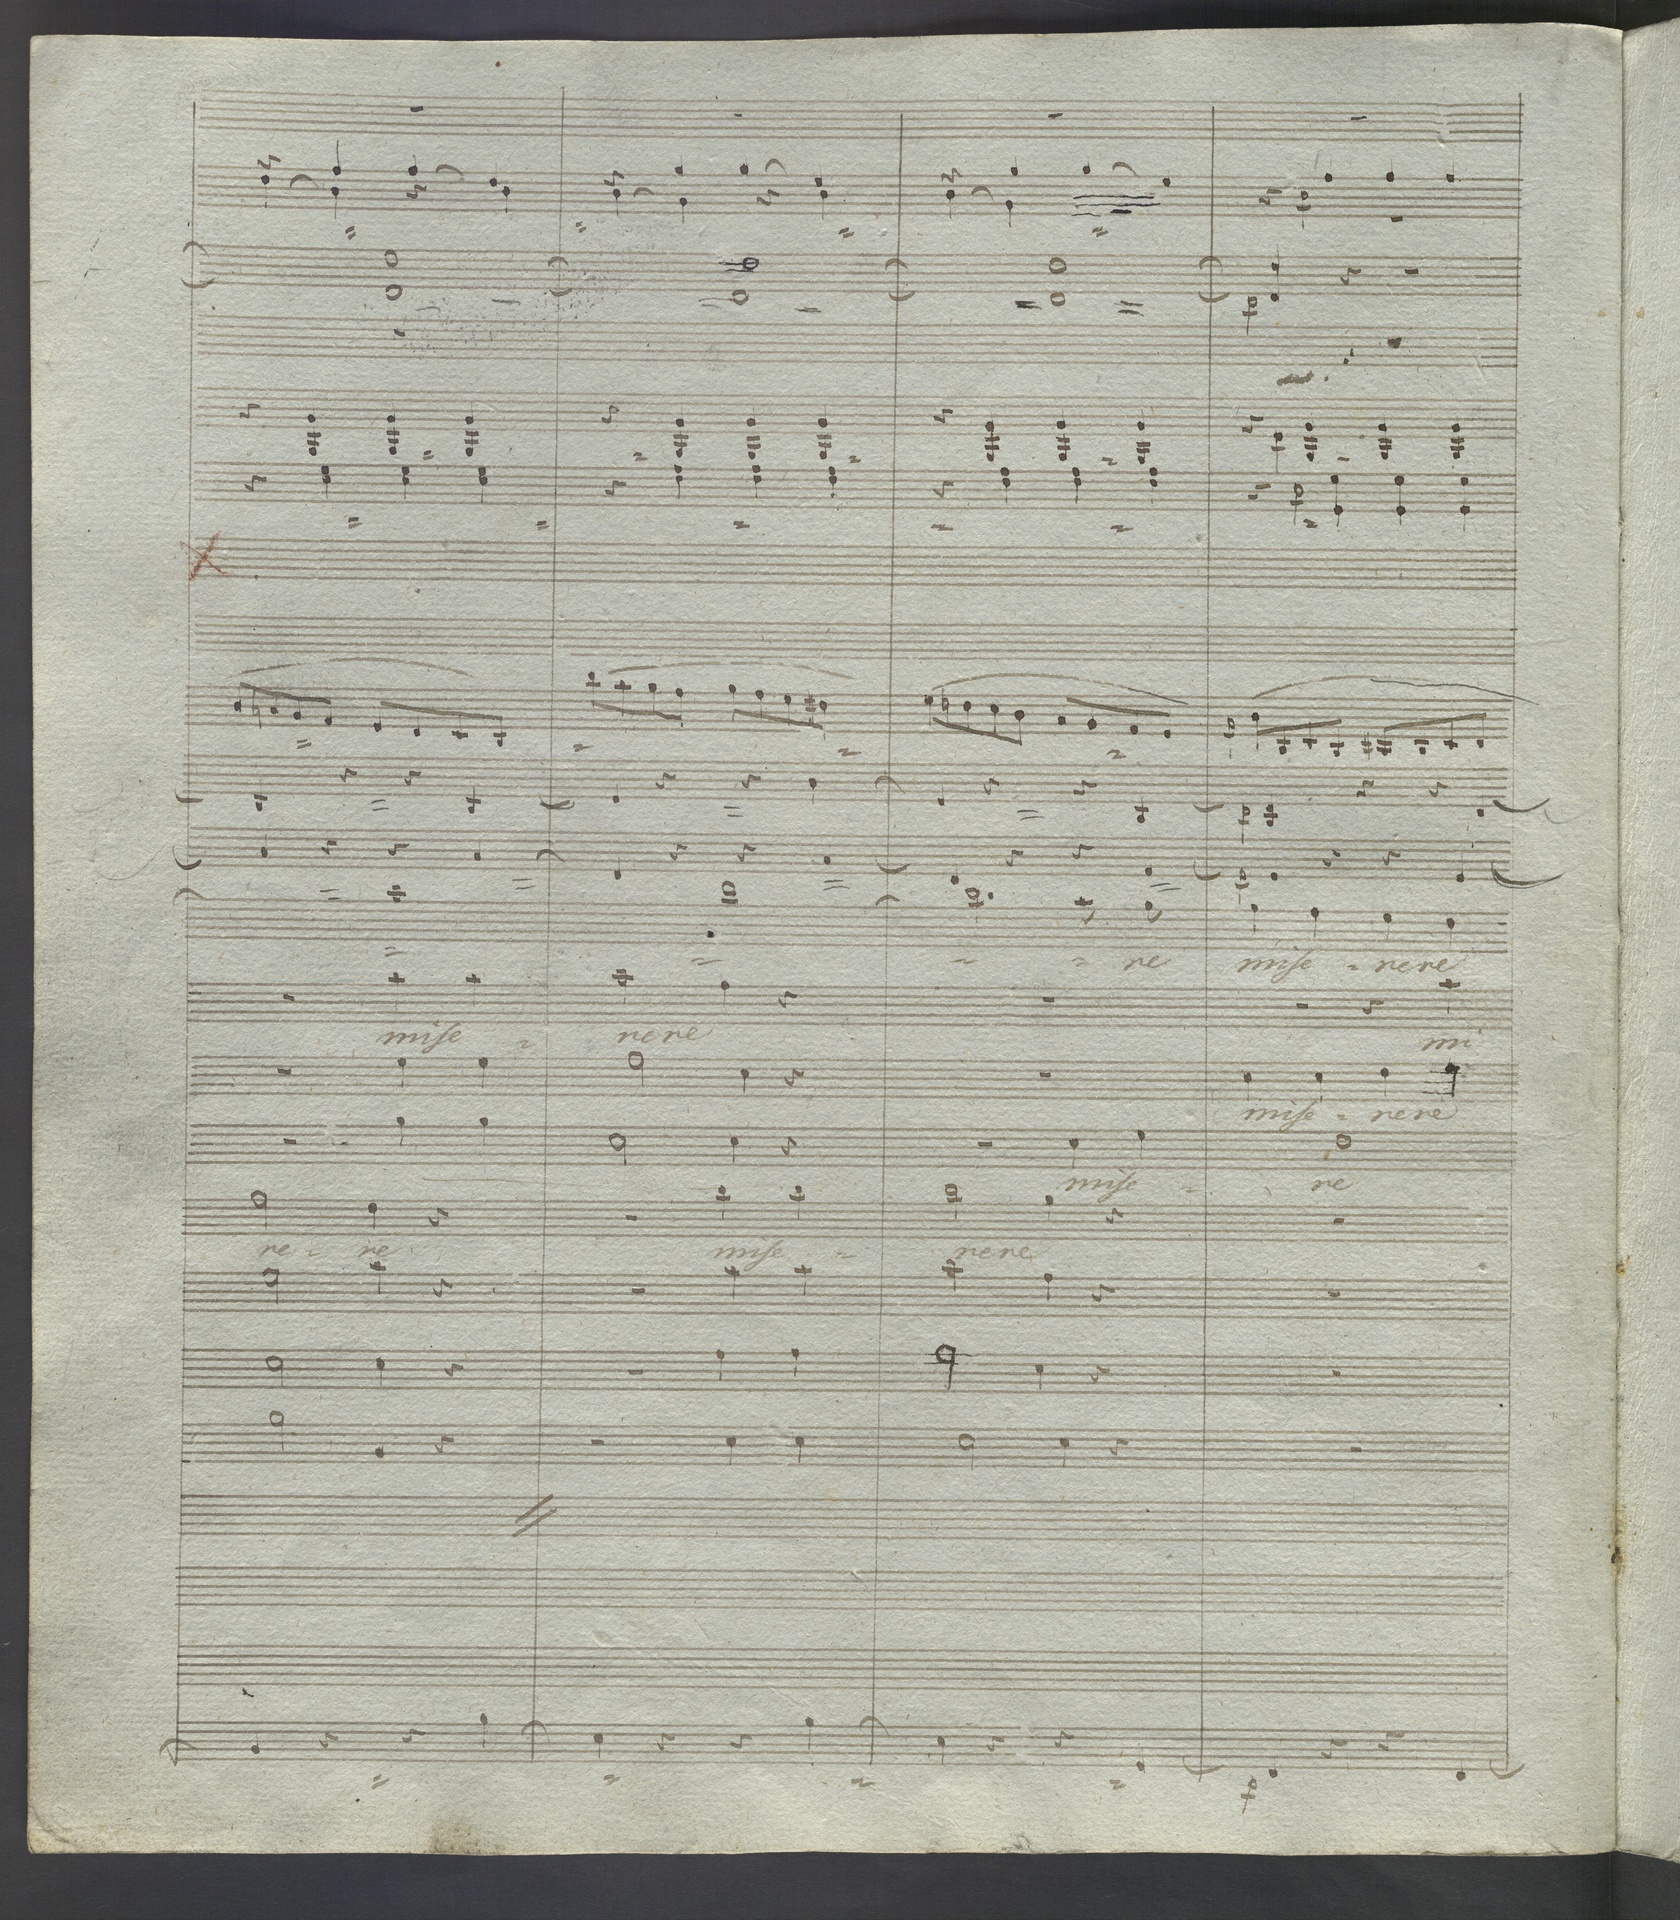 = = re mise - rere
mise = rere mi
mise - rere
mise - re
re - re mise = rere